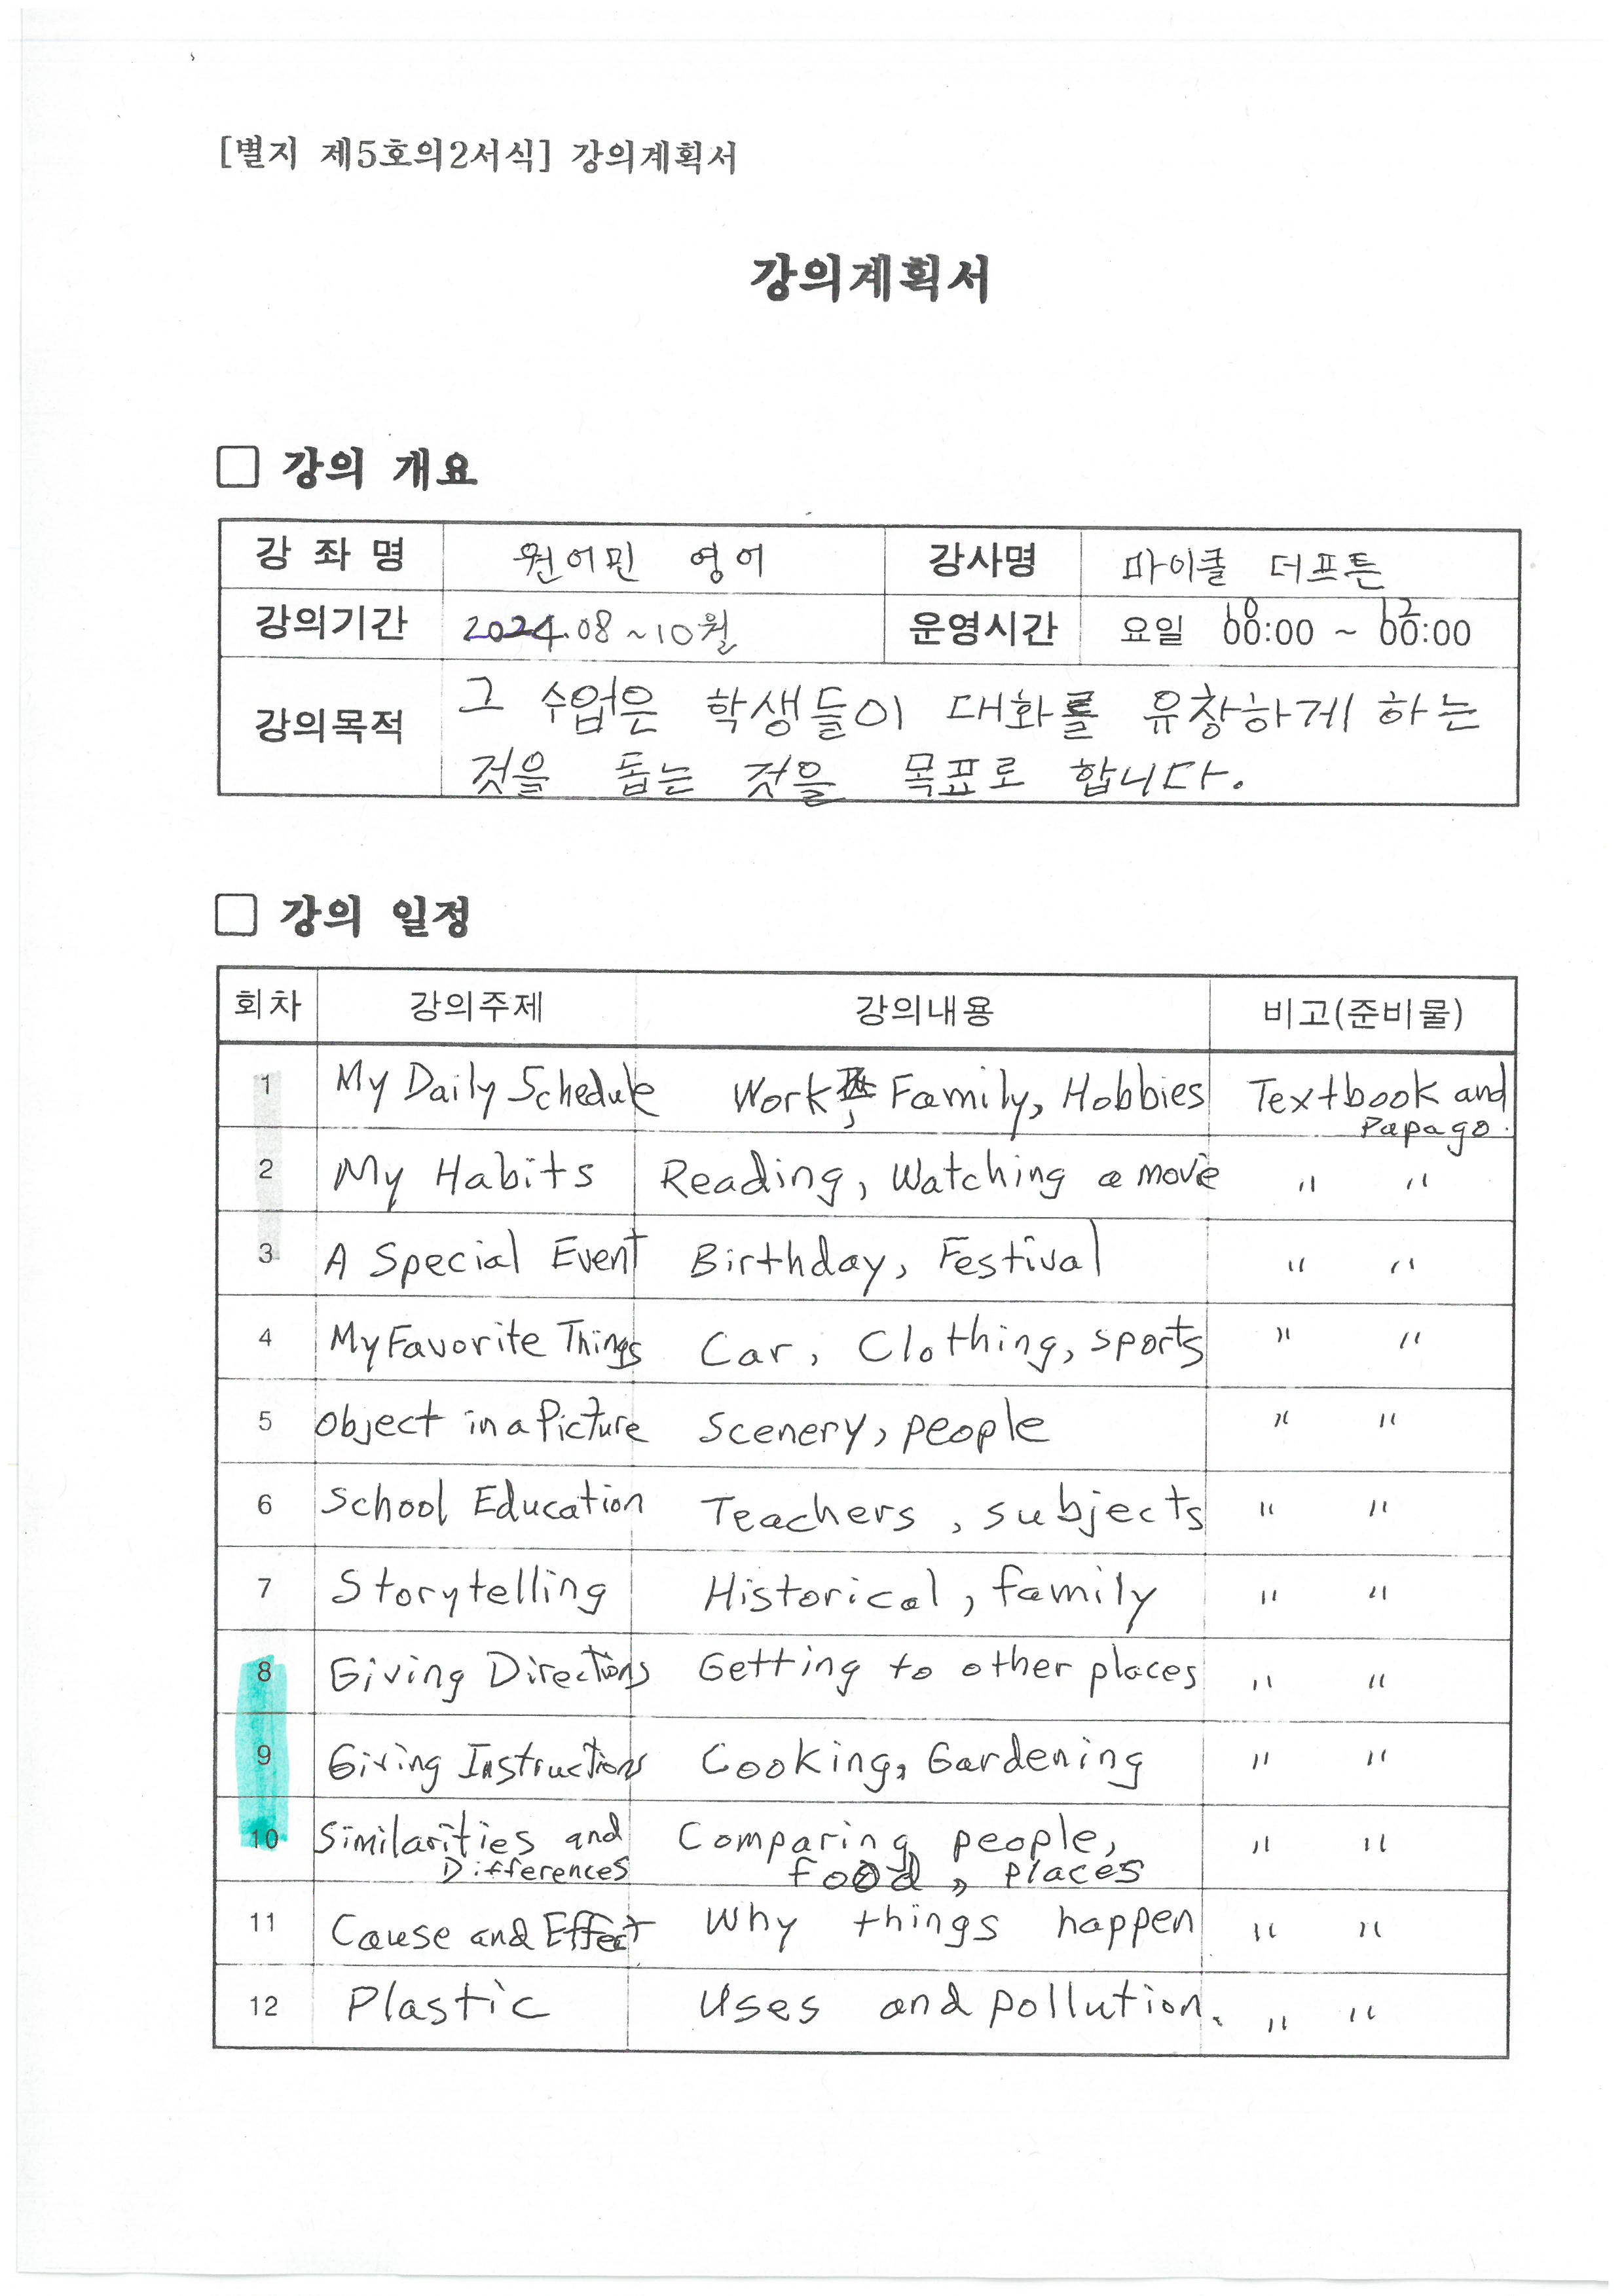 [별지 제5호의2서식] 강의계획서
강의계획서
□ 강의 개요
강 좌 명 원어민 영어 강사명 마이클 더프튼
강의기간 2024.08~10월 운영시간 요일 10:00 ~ 12:00
강의목적 그 수업은 학생들이 대화를 유창하게 하는
것을 돕는 것을 목표로 합니다.
□ 강의 일정
회차 강의주제 강의내용 비고(준비물)
1 My Daily Schedule Work, Family, Hobbies Textbook and
Papago.
2 My Habits Reading, Watching a movie " "
3 A Special Event Birthday, Festival " "
4 My Favorite Things Car, Clothing, sports " "
5 Object in a Picture Scenery, people " "
6 School Education Teachers, subjects " "
7 Storytelling Historical, family " "
8 Giving Directions Getting to other places " "
9 Giving Instructions Cooking, Gardening " "
10 Similarities and Comparing people, " "
Differences food, places
11 Cause and Effect Why things happen " "
12 Plastic Uses and pollution. " "